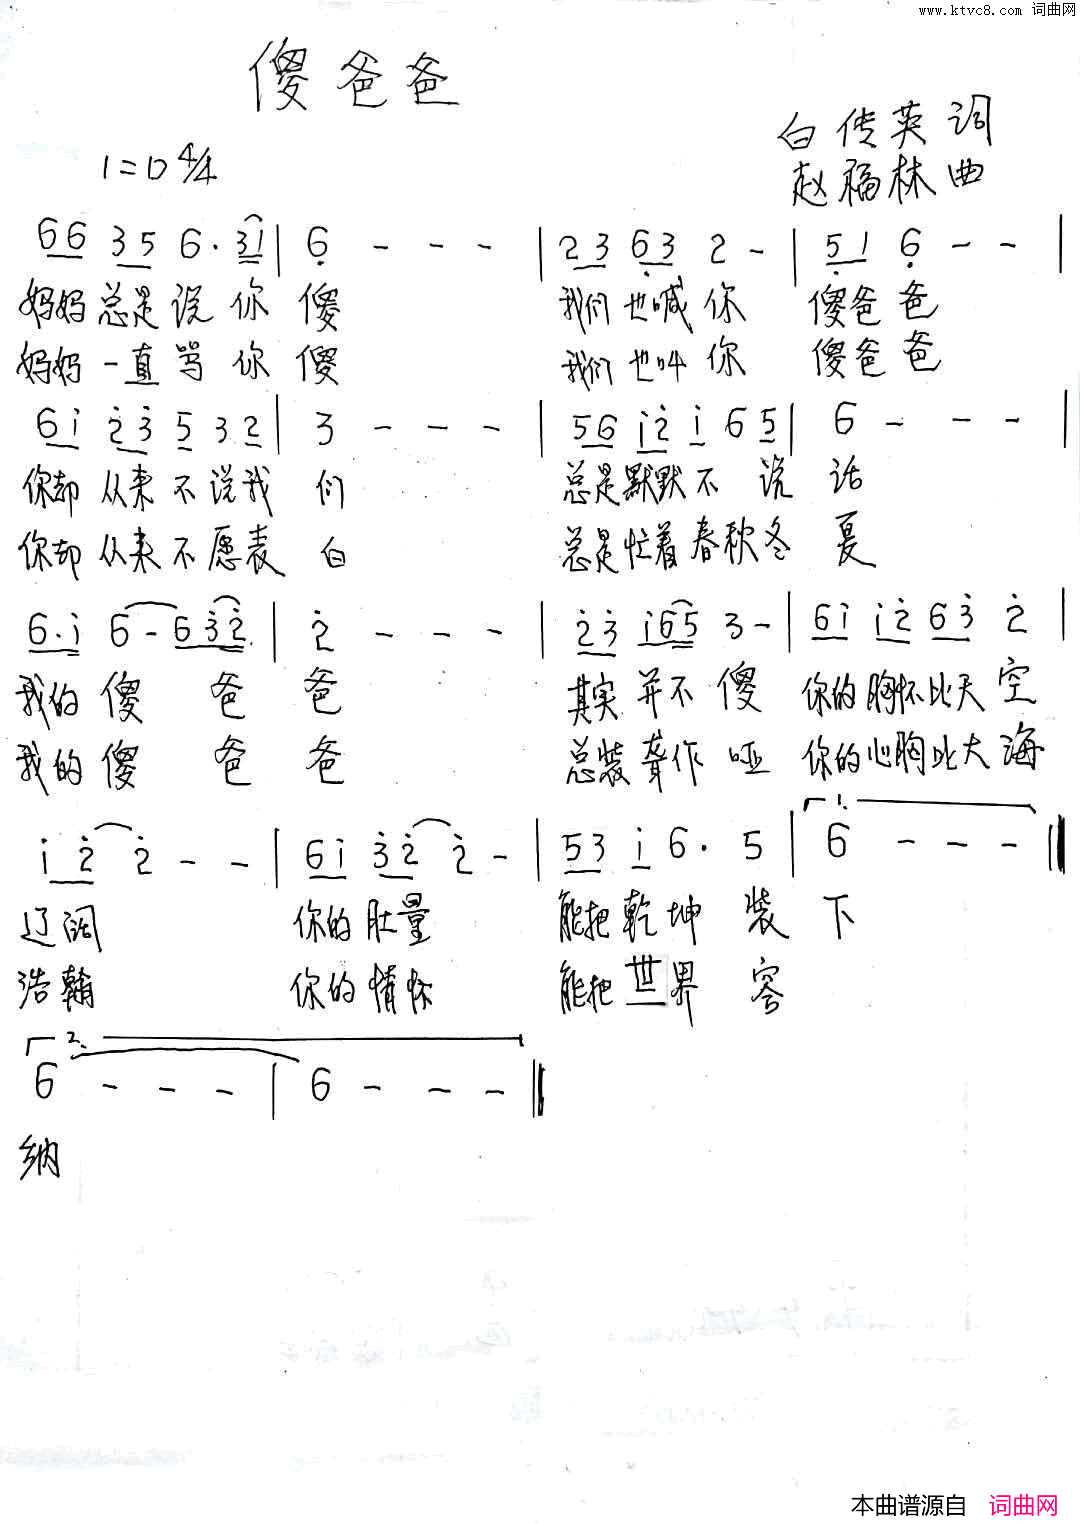 www.ktvc8.com 词曲网
傻爸爸
白传英词
1=D 4/4
赵福林曲
66 35 6· 31 | 6 - - - | 23 63 2 - | 51 6 - - |
妈妈总是说你傻 我们也喊你 傻爸爸
妈妈一直骂你傻 我们也叫你 傻爸爸
6i 23 5 32 | 3 - - - | 56 i2 i 65 | 6 - - - |
你却从来不说我们 总是默默不说话
你却从来不愿表白 总是忙着春秋冬夏
6·i 6-632 | 2 - - - | 23 i65 3- | 6i i2 63 2 |
我的傻爸爸 其实并不傻 你的胸怀比天空
我的傻爸爸 总装聋作哑 你的心胸比大海
i2 2 - - | 6i 32 2 - | 53 i 6· 5 | 1. 6 - - - ‖
辽阔 你的肚量 能把乾坤装下
浩翰 你的情怀 能把世界容
2. 6 - - - | 6 - - - ‖
纳
本曲谱源自 词曲网